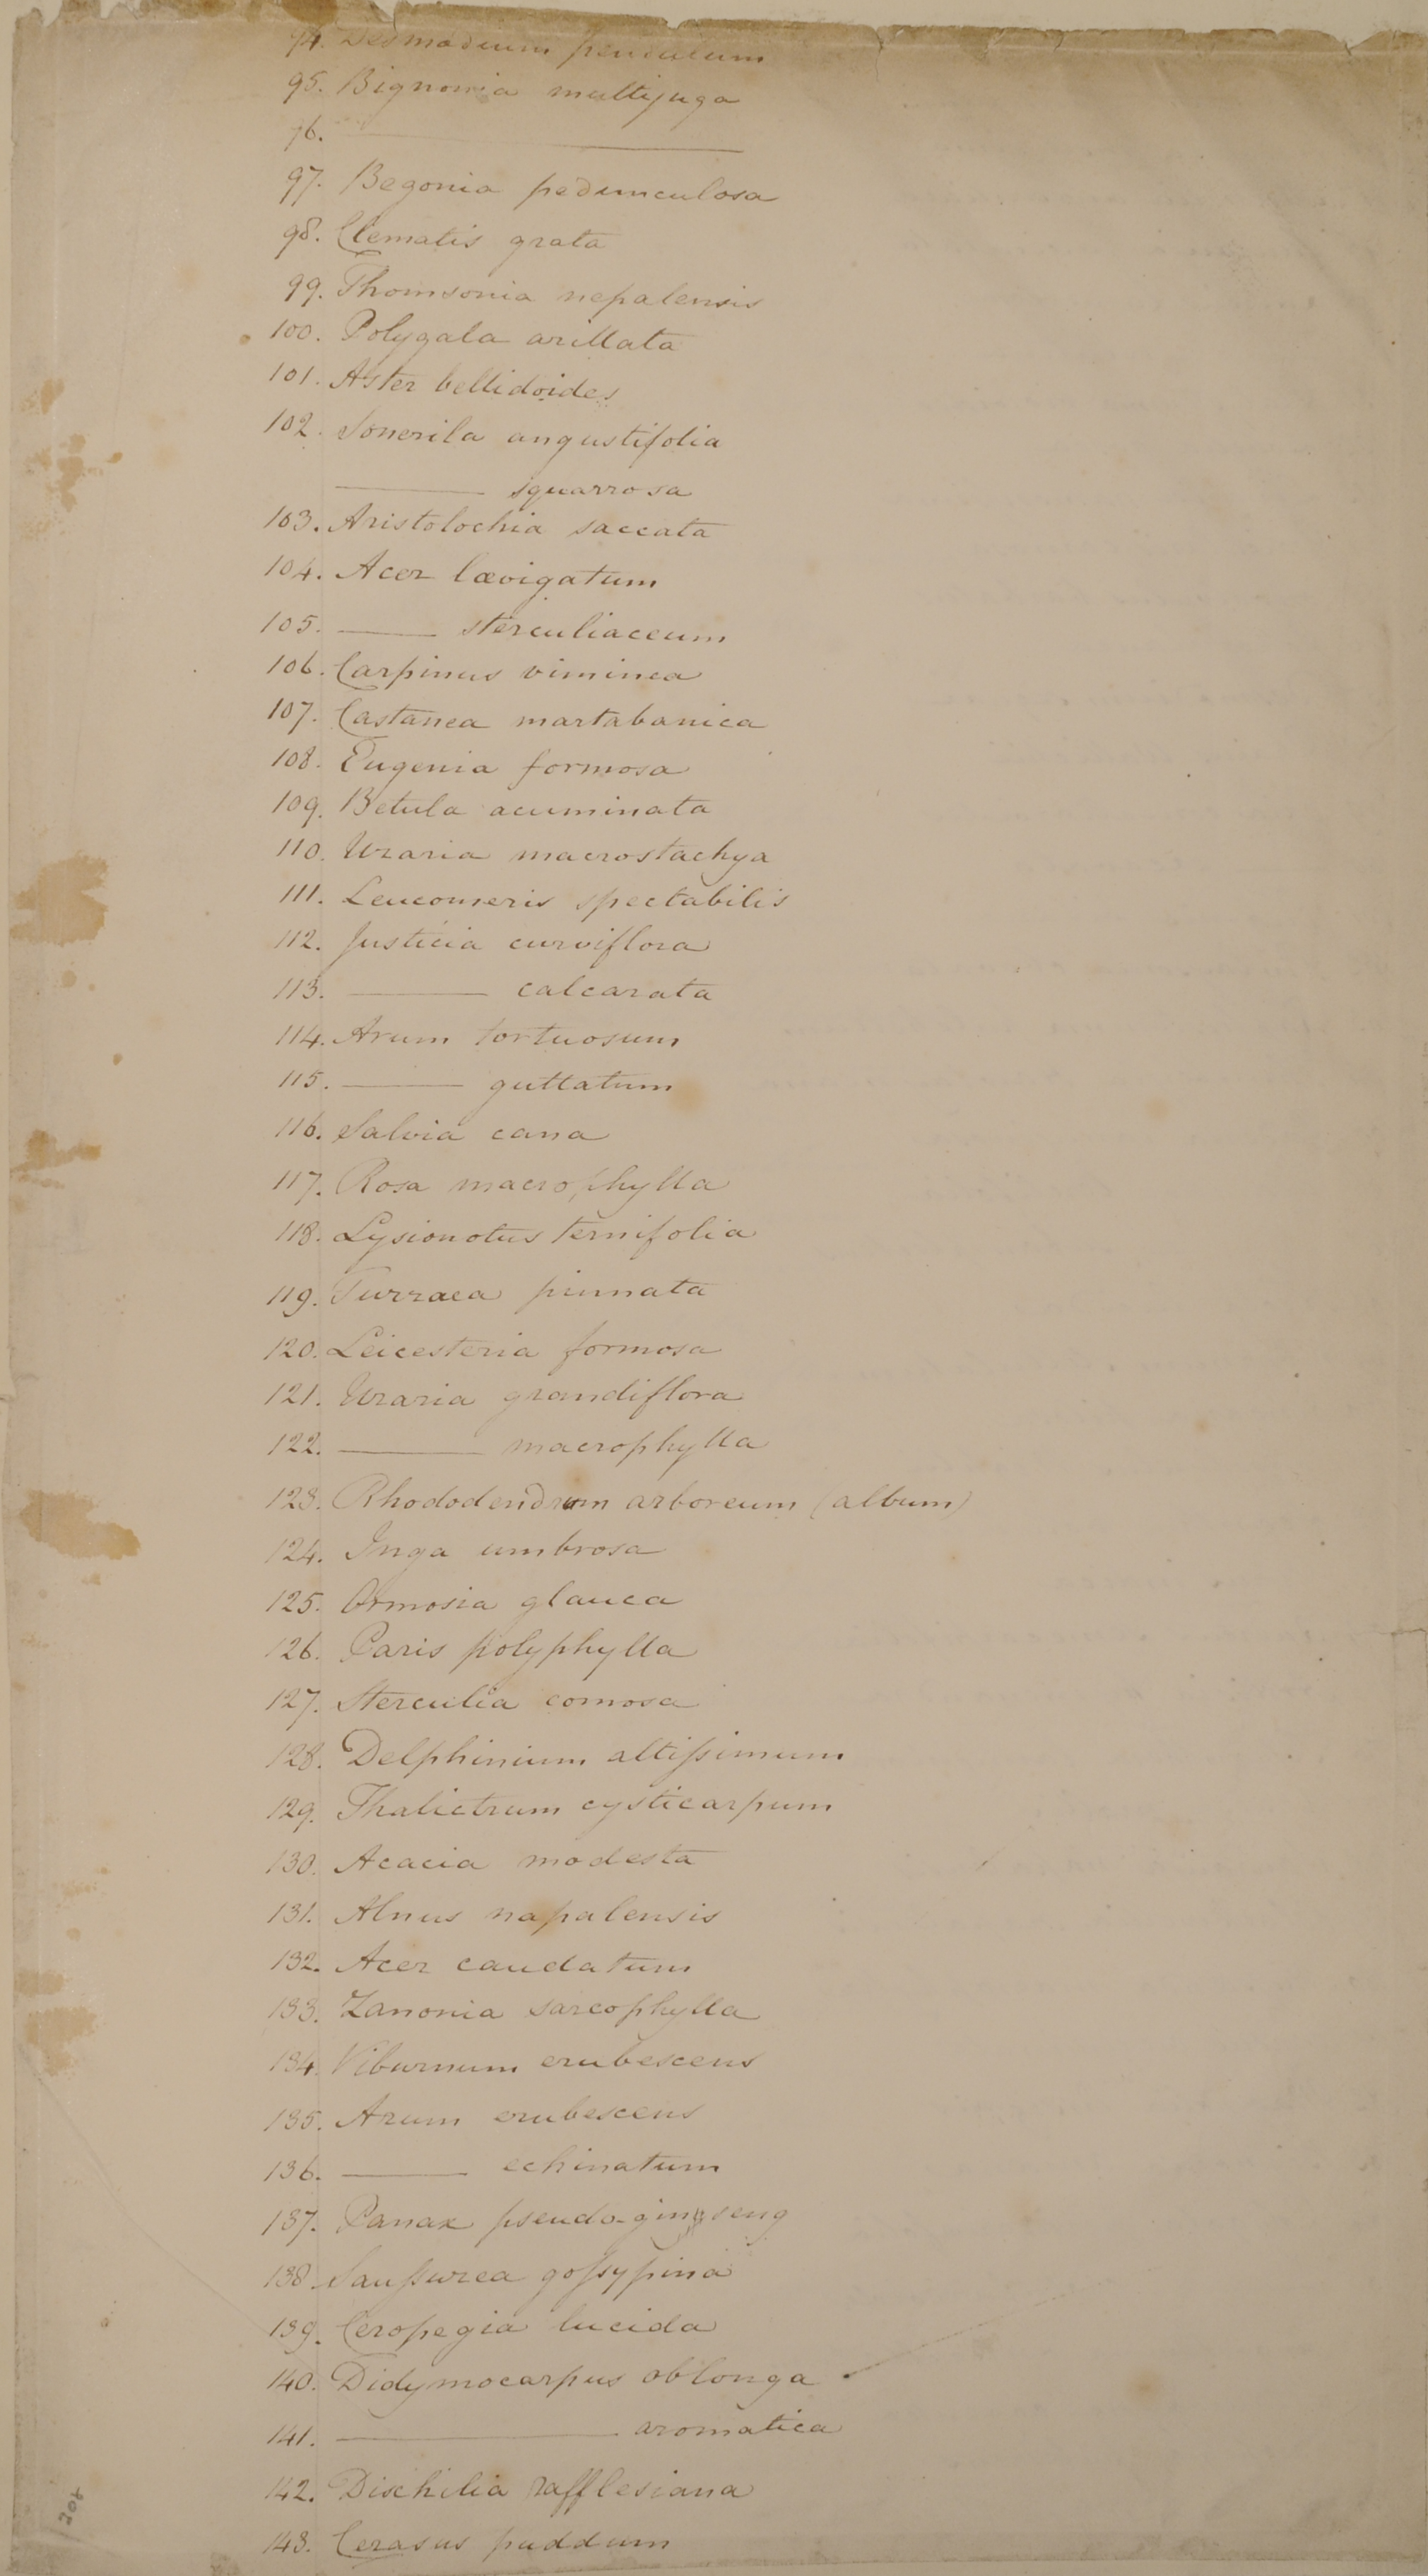 94. Desmodium penduleum
95. Bignonia multijuga
96. ———
97. Begonia pedunculosa
98. Clematis grata
99. Thomsonia nepalensis
100. Polygala arillata
101. Aster bellidoides
102. Sonerila angustifolia
——— squarrosa
103. Aristolochia saccata
104. Acer lævigatum
105. ——— sterculiaceum
106. Carpinus viminea
107. Castanea martabanica
108. Eugenia formosa
109. Betula acuminata
110. Uraria macrostachya
111. Leucomeris spectabilis
112. Justicia curviflora
113. ——— calcarata
114. Arum tortuosum
115. ——— guttatum
116. Salvia cana
117. Rosa macrophylla
118. Lysionotus ternifolia
119. Turraea pinnata
120. Leicesteria formosa
121. Uraria grandiflora
122. ——— macrophylla
123. Rhododendrum arboreum (album)
124. Inga umbrosa
125. Ormosia glauca
126. Paris polyphylla
127. Sterculia comosa
128. Delphinium altiſsimum
129. Thalictrum cysticarpum
130. Acacia modesta
131. Alnus napalensis
132. Acer caudatum
133. Zanonia sarcophylla
134. Viburnum erubescens
135. Arum erubescens
136. ——— echinatum
137. Panax pseudo-ginseng
138. Sauſsurea goſsypina
139. Ceropegia lucida
140. Didymocarpus oblonga
141. ——— aromatica
142. Dischilia rafflesiana
143. Cerasus puddum